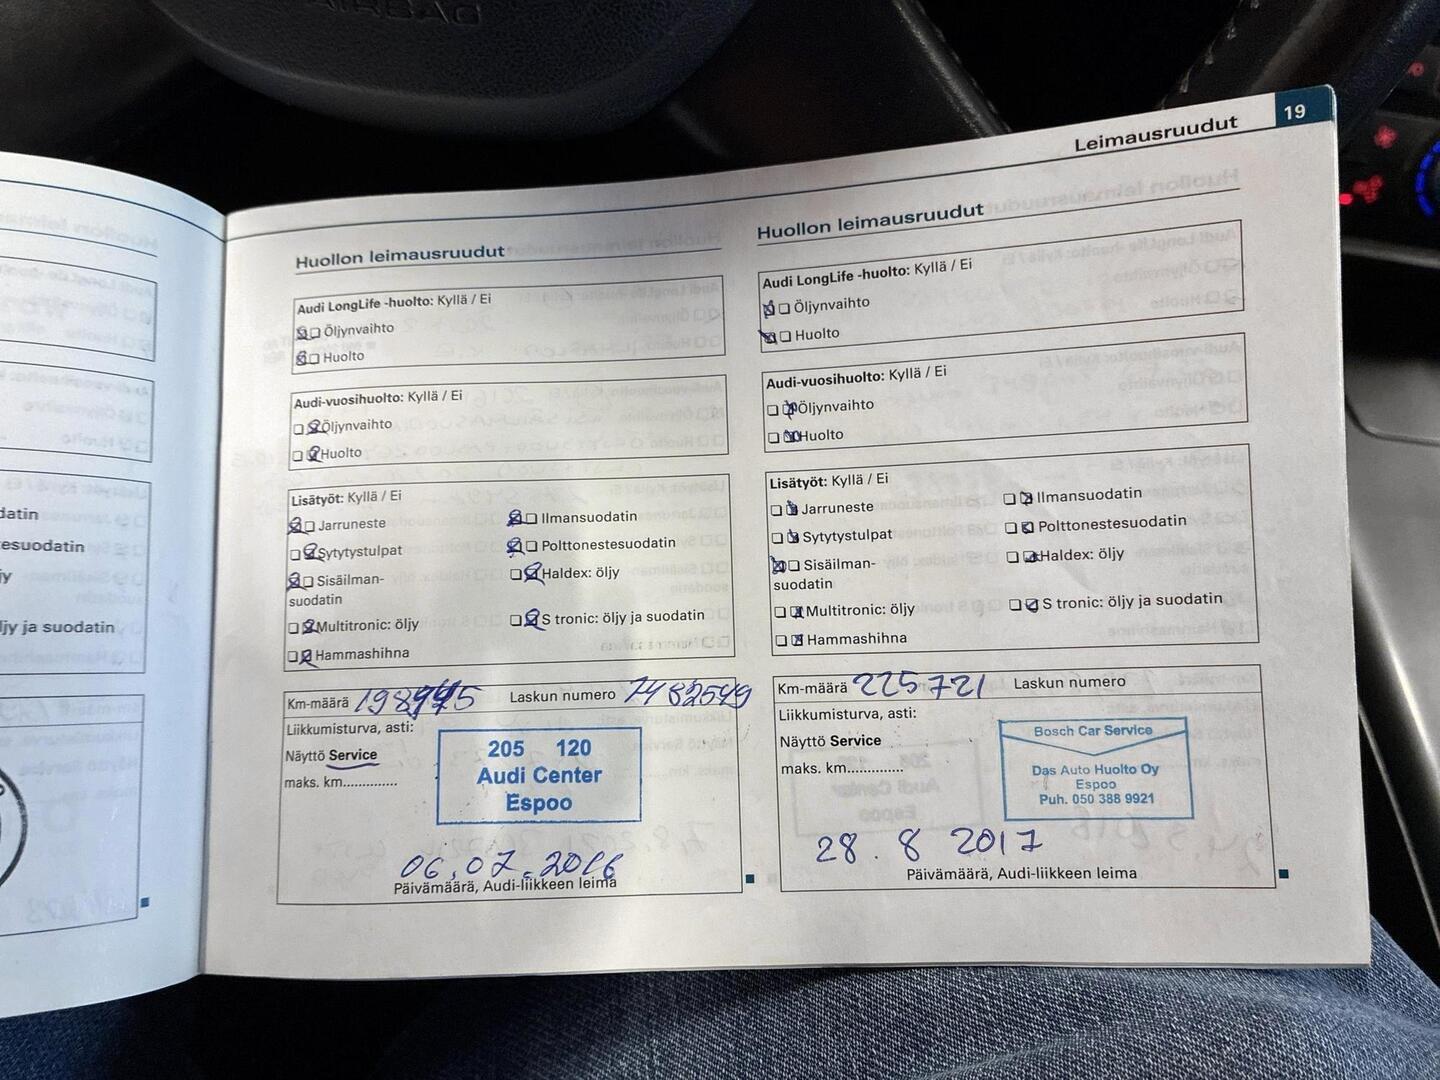 AIRBAG
Leimausruudut 19
Huollon leimausruudut
Audi LongLife -huolto: Kyllä / Ei
Öljynvaihto
Huolto
Audi-vuosihuolto: Kyllä / Ei
Öljynvaihto
Huolto
Lisätyöt: Kyllä / Ei
Jarruneste
Ilmansuodatin
Sytytystulpat
Polttonestesuodatin
Sisäilman-
suodatin
Haldex: öljy
Multitronic: öljy
S tronic: öljy ja suodatin
Hammashihna
Km-määrä
Laskun numero 7482549
Liikkumisturva, asti:
Näyttö Service
maks. km..............
205 120
Audi Center
Espoo
06.07.2016
Päivämäärä, Audi-liikkeen leima
Huollon leimausruudut
Audi LongLife -huolto: Kyllä / Ei
Öljynvaihto
Huolto
Audi-vuosihuolto: Kyllä / Ei
Öljynvaihto
Huolto
Lisätyöt: Kyllä / Ei
Jarruneste
Ilmansuodatin
Sytytystulpat
Polttonestesuodatin
Sisäilman-
suodatin
Haldex: öljy
Multitronic: öljy
S tronic: öljy ja suodatin
Hammashihna
Km-määrä 225721 Laskun numero
Liikkumisturva, asti:
Näyttö Service
maks. km..............
Bosch Car Service
Das Auto Huolto Oy
Espoo
Puh. 050 388 9921
28.8 2017
Päivämäärä, Audi-liikkeen leima
datin
esuodatin
jy
ljy ja suodatin